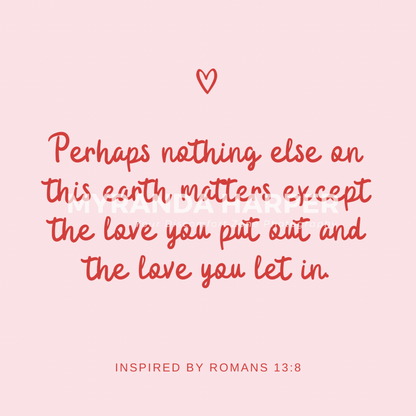 Perhaps nothing else on
this earth matters except
MYRANDA HARPER
the love you put out and
the love you let in.
INSPIRED BY ROMANS 13:8